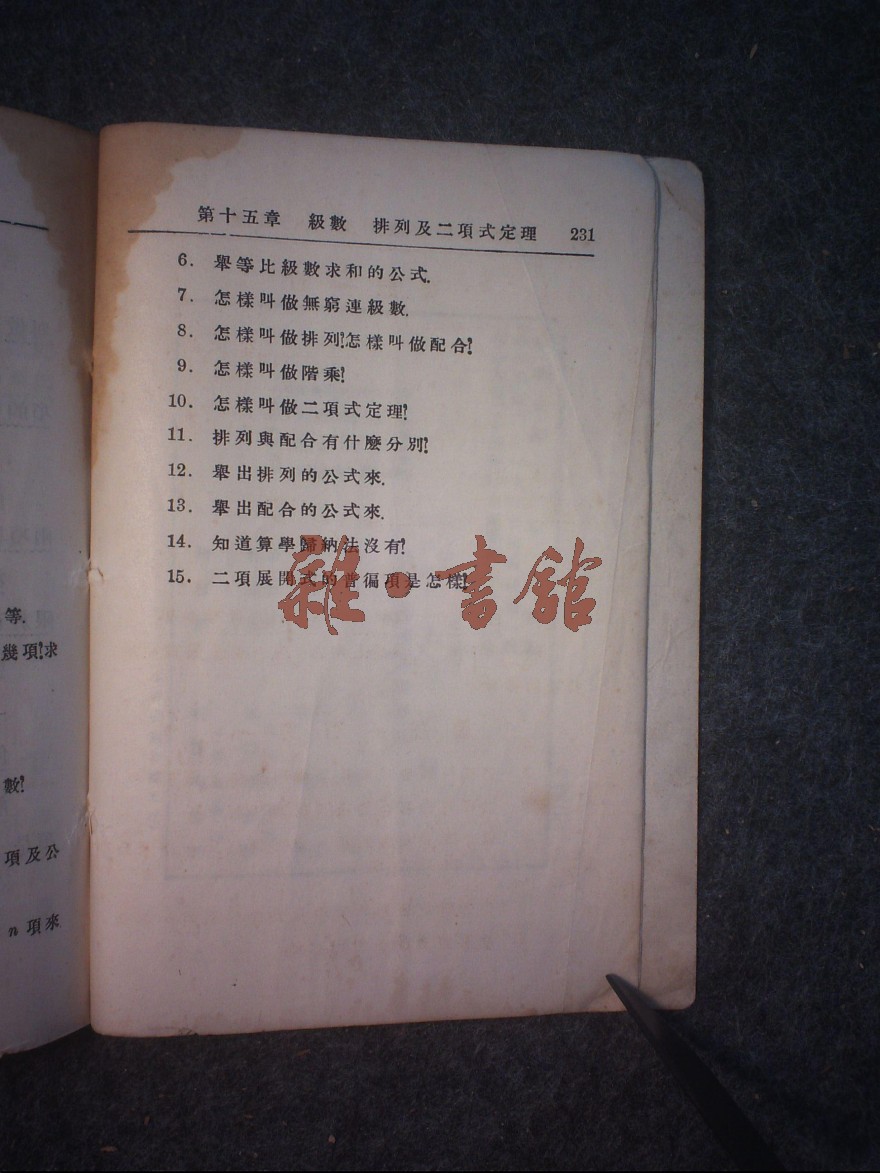 等.
幾項?求
數?
項及公
n 項來
第十五章 級數 排列及二項式定理 231
6. 舉等比級數求和的公式.
7. 怎樣叫做無窮連級數.
8. 怎樣叫做排列?怎樣叫做配合?
9. 怎樣叫做階乘?
10. 怎樣叫做二項式定理?
11. 排列與配合有什麼分別?
12. 舉出排列的公式來.
13. 舉出配合的公式來.
14. 知道算學歸納法沒有?
15. 二項展開式的普徧項是怎樣?
雜·書館